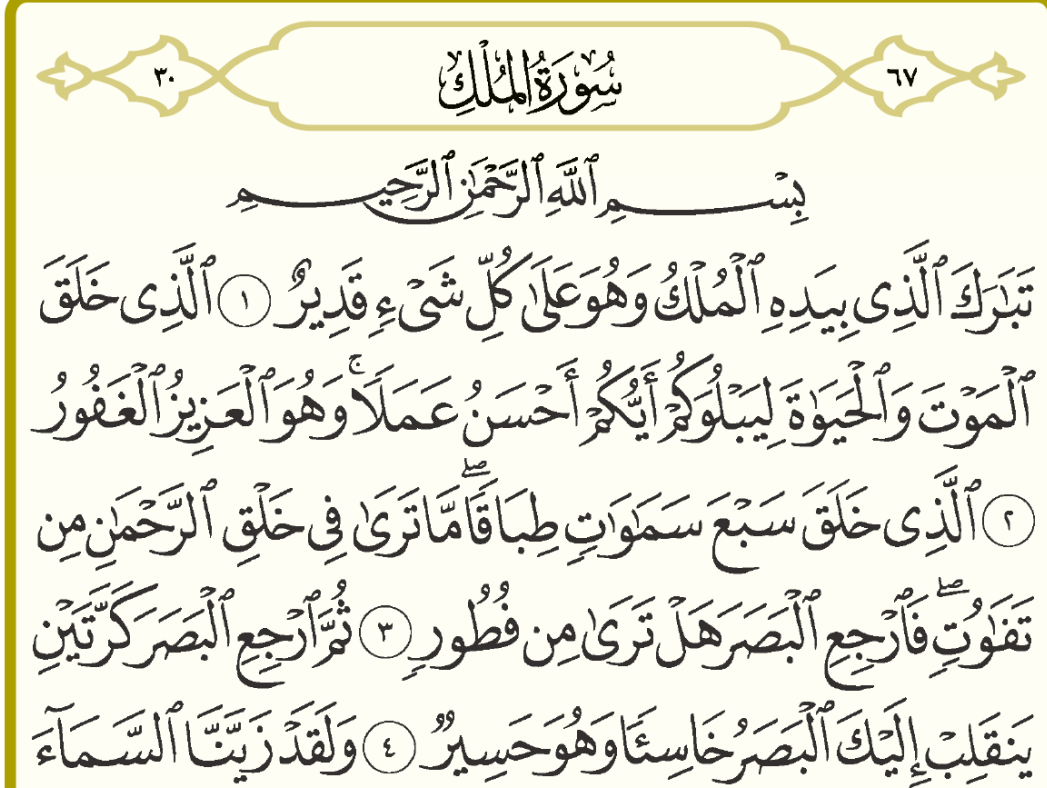 ٦٧ سُورَةُ المُلْكِ ٣٠
بِسْمِ ٱللَّهِ ٱلرَّحْمَٰنِ ٱلرَّحِيمِ
تَبَٰرَكَ ٱلَّذِى بِيَدِهِ ٱلْمُلْكُ وَهُوَ عَلَىٰ كُلِّ شَىْءٍ قَدِيرٌ ١ ٱلَّذِى خَلَقَ
ٱلْمَوْتَ وَٱلْحَيَوٰةَ لِيَبْلُوَكُمْ أَيُّكُمْ أَحْسَنُ عَمَلًا ۚ وَهُوَ ٱلْعَزِيزُ ٱلْغَفُورُ
٢ ٱلَّذِى خَلَقَ سَبْعَ سَمَٰوَٰتٍ طِبَاقًا ۖ مَّا تَرَىٰ فِى خَلْقِ ٱلرَّحْمَٰنِ مِن
تَفَٰوُتٍ ۖ فَٱرْجِعِ ٱلْبَصَرَ هَلْ تَرَىٰ مِن فُطُورٍ ٣ ثُمَّ ٱرْجِعِ ٱلْبَصَرَ كَرَّتَيْنِ
يَنقَلِبْ إِلَيْكَ ٱلْبَصَرُ خَاسِئًا وَهُوَ حَسِيرٌ ٤ وَلَقَدْ زَيَّنَّا ٱلسَّمَآءَ